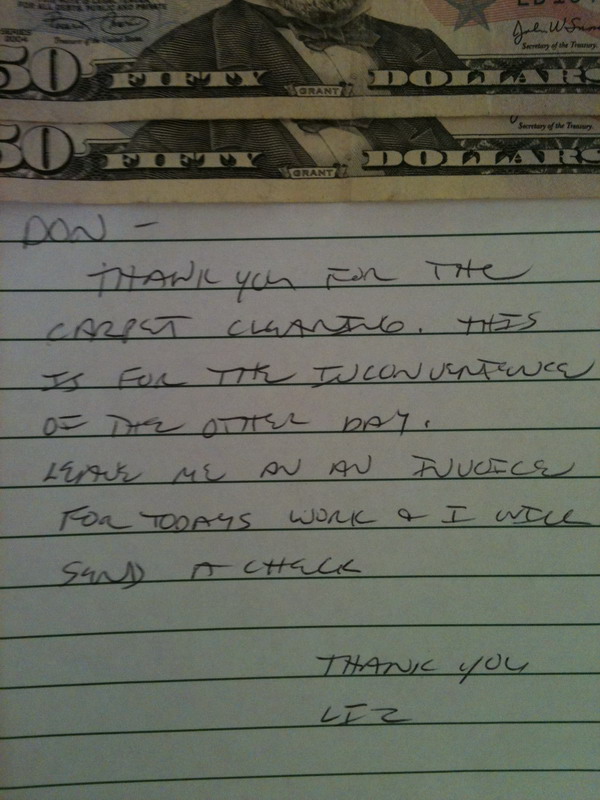 FOR ALL DEBTS, PUBLIC AND PRIVATE
SERIES
2004
Treasurer of the United States.
Secretary of the Treasury.
50 FIFTY GRANT DOLLARS
Secretary of the Treasury.
50 FIFTY GRANT DOLLARS
DON -
THANK YOU FOR THE
CARPET CLEANING. THIS
IS FOR THE INCONVENIENCE
OF THE OTHER DAY.
LEAVE ME AN AN INVOICE
FOR TODAYS WORK & I WILL
SEND A CHECK
THANK YOU
LIZ